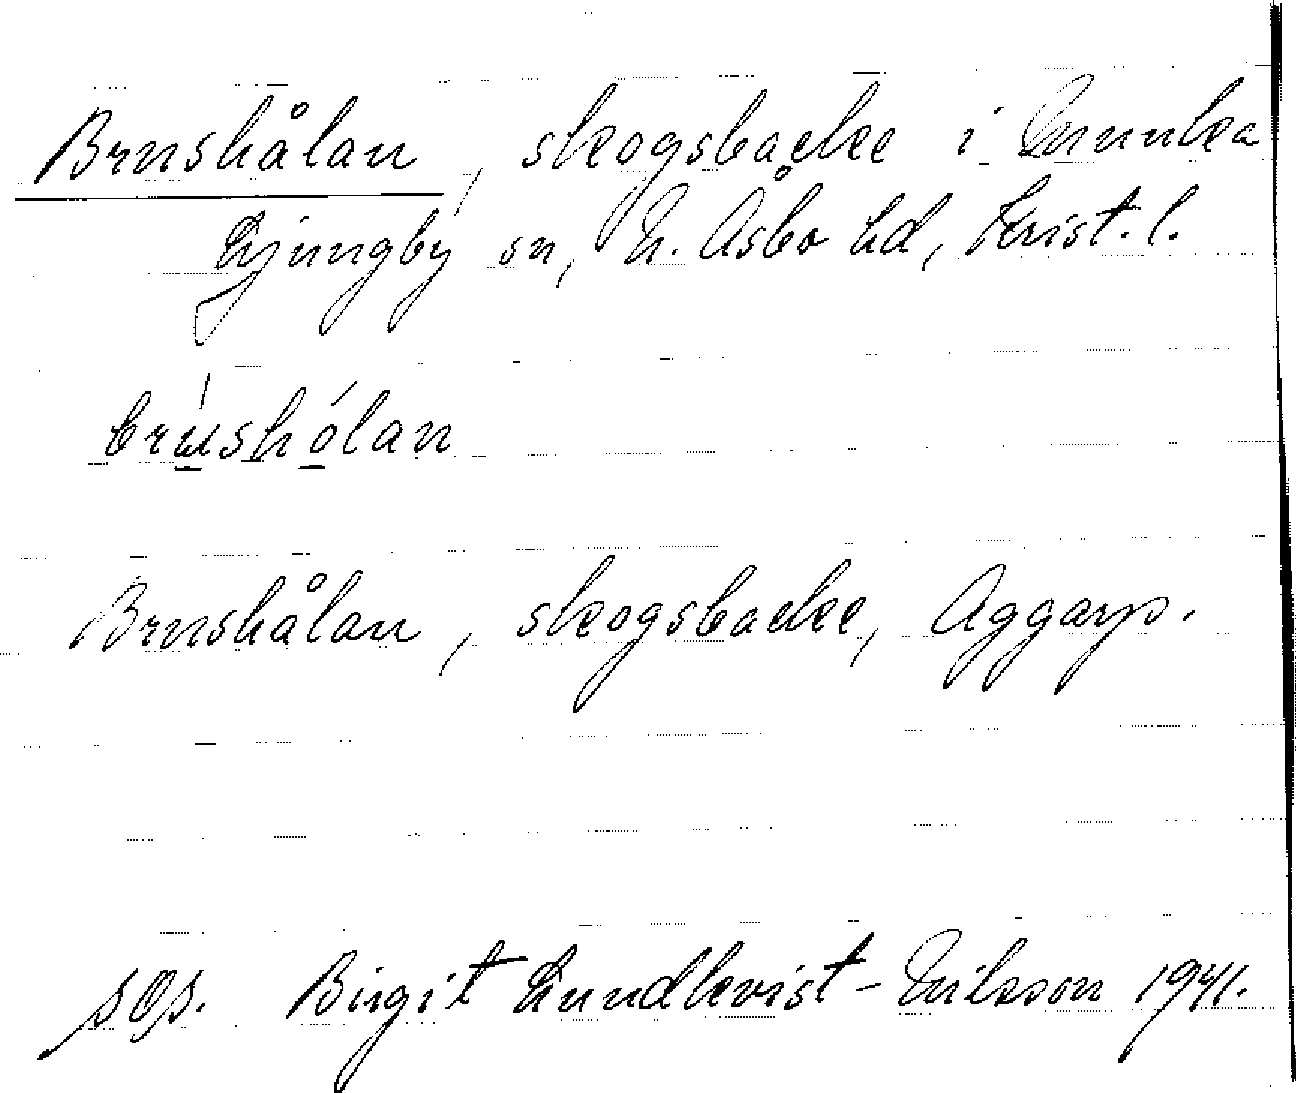 Brushålan, skogsbacke i Munka
Ljungby sn, N. Åsbo hd, Krist. l.
brùshólan
Brushålan, skogsbacke, Aggarp.
Birgit Lundkvist-Nilsson 1941.